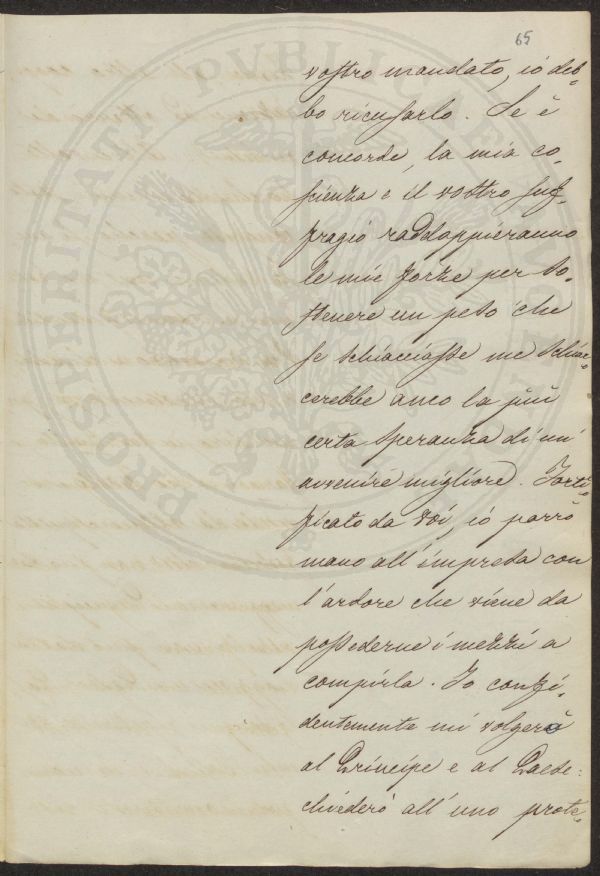 65
vostro mandato, io deb=
bo ricusarlo. Se è
concorde, la mia co=
scienza e il vostro suf=
fragio raddoppieranno
le mie forze per so=
stenere un peso che
se schiacciasse me schiac=
cerebbe anco la più
certa speranza di un
avvenire migliore. Forti=
ficato da voi, io porrò
mano all'impresa con
l'ardore che viene da
possederne i mezzi a
compirla. Io confi=
dentemente mi volgerò
al Principe e al Paese:
chiederò all'uno prote=
PROSPERITATI PVBLICAE